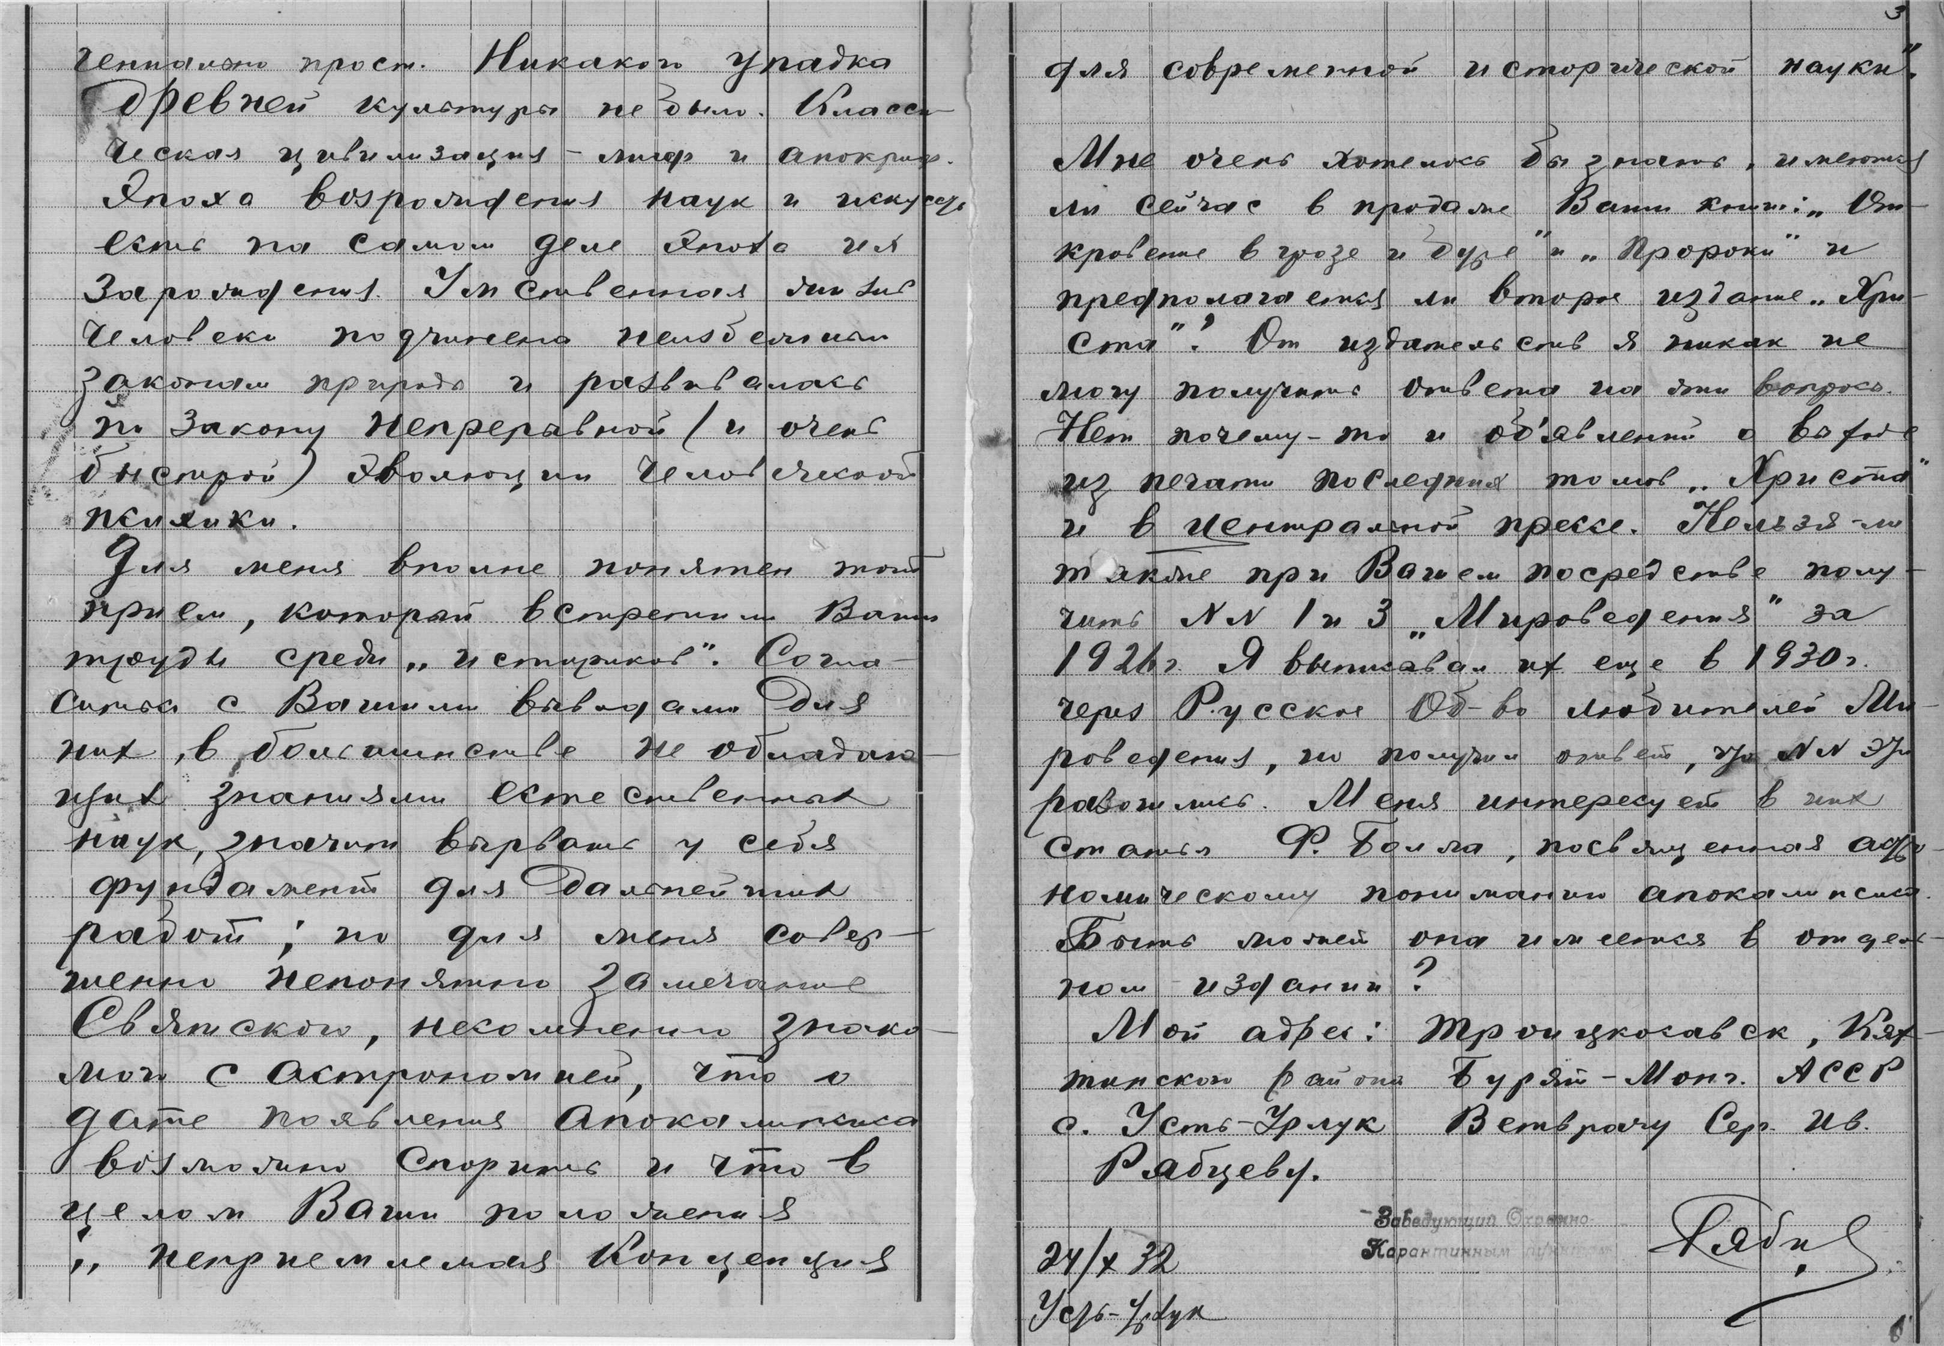 гениально прост. Никакого упадка
древней культуры не было. Класси
ческая цивилизация – миф и апокриф.
Эпоха возрождения наук и искусств
есть на самом деле эпоха их
зарождения. Умственная жизнь
человека подчинена неизбежным
законам природы и развивалась
по закону непрерывной (и очень
быстрой) эволюции человеческой
психики.
Для меня вполне понятен тот
прием, который встретили Ваши
труды среди „историков". Согла-
ситься с Вашими выводами для
них, в большинстве не обладаю-
щих знаниями естественных
наук, значит вырвать у себя
фундамент для дальнейших
работ; но для меня совер-
шенно непонятно замечание
Святского, несомненно знако-
мого с астрономией, что о
дате появления апокалипсиса
возможно спорить и что в
целом Ваши положения
„неприемлемая концепция
3
для современной исторической науки".
Мне очень хотелось бы знать, имеются
ли сейчас в продаже Ваши книги: „От-
кровение в грозе и буре" и „Пророки" и
предполагается ли второе издание „Хри-
ста"? От издательств я никак не
могу получить ответа на эти вопросы.
Нет почему-то и об'явлений о выходе
из печати последних томов „Христа"
и в центральной прессе. Нельзя-ли
также при Вашем посредстве полу-
чить NN 1 и 3 „Мироведения" за
1926г. Я выписывал их еще в 1930г.
через Русское Об-во любителей Ми-
роведения, но получил ответ, что NN эти
разошлись. Меня интересует в них
статья Ф. Болла, посвященная астро-
номическому пониманию апокалипсиса.
Быть может она имеется в отдель-
ном издании?
Мой адрес: Троицкосавск, Кях-
тинского района Бурят-Монг. АССР
с. Усть-Урлук Ветврачу Сер. Ив.
Рябцеву.
Заведующий Охранно-
Карантинным пунктом
24/X 32
Усть-Урлук